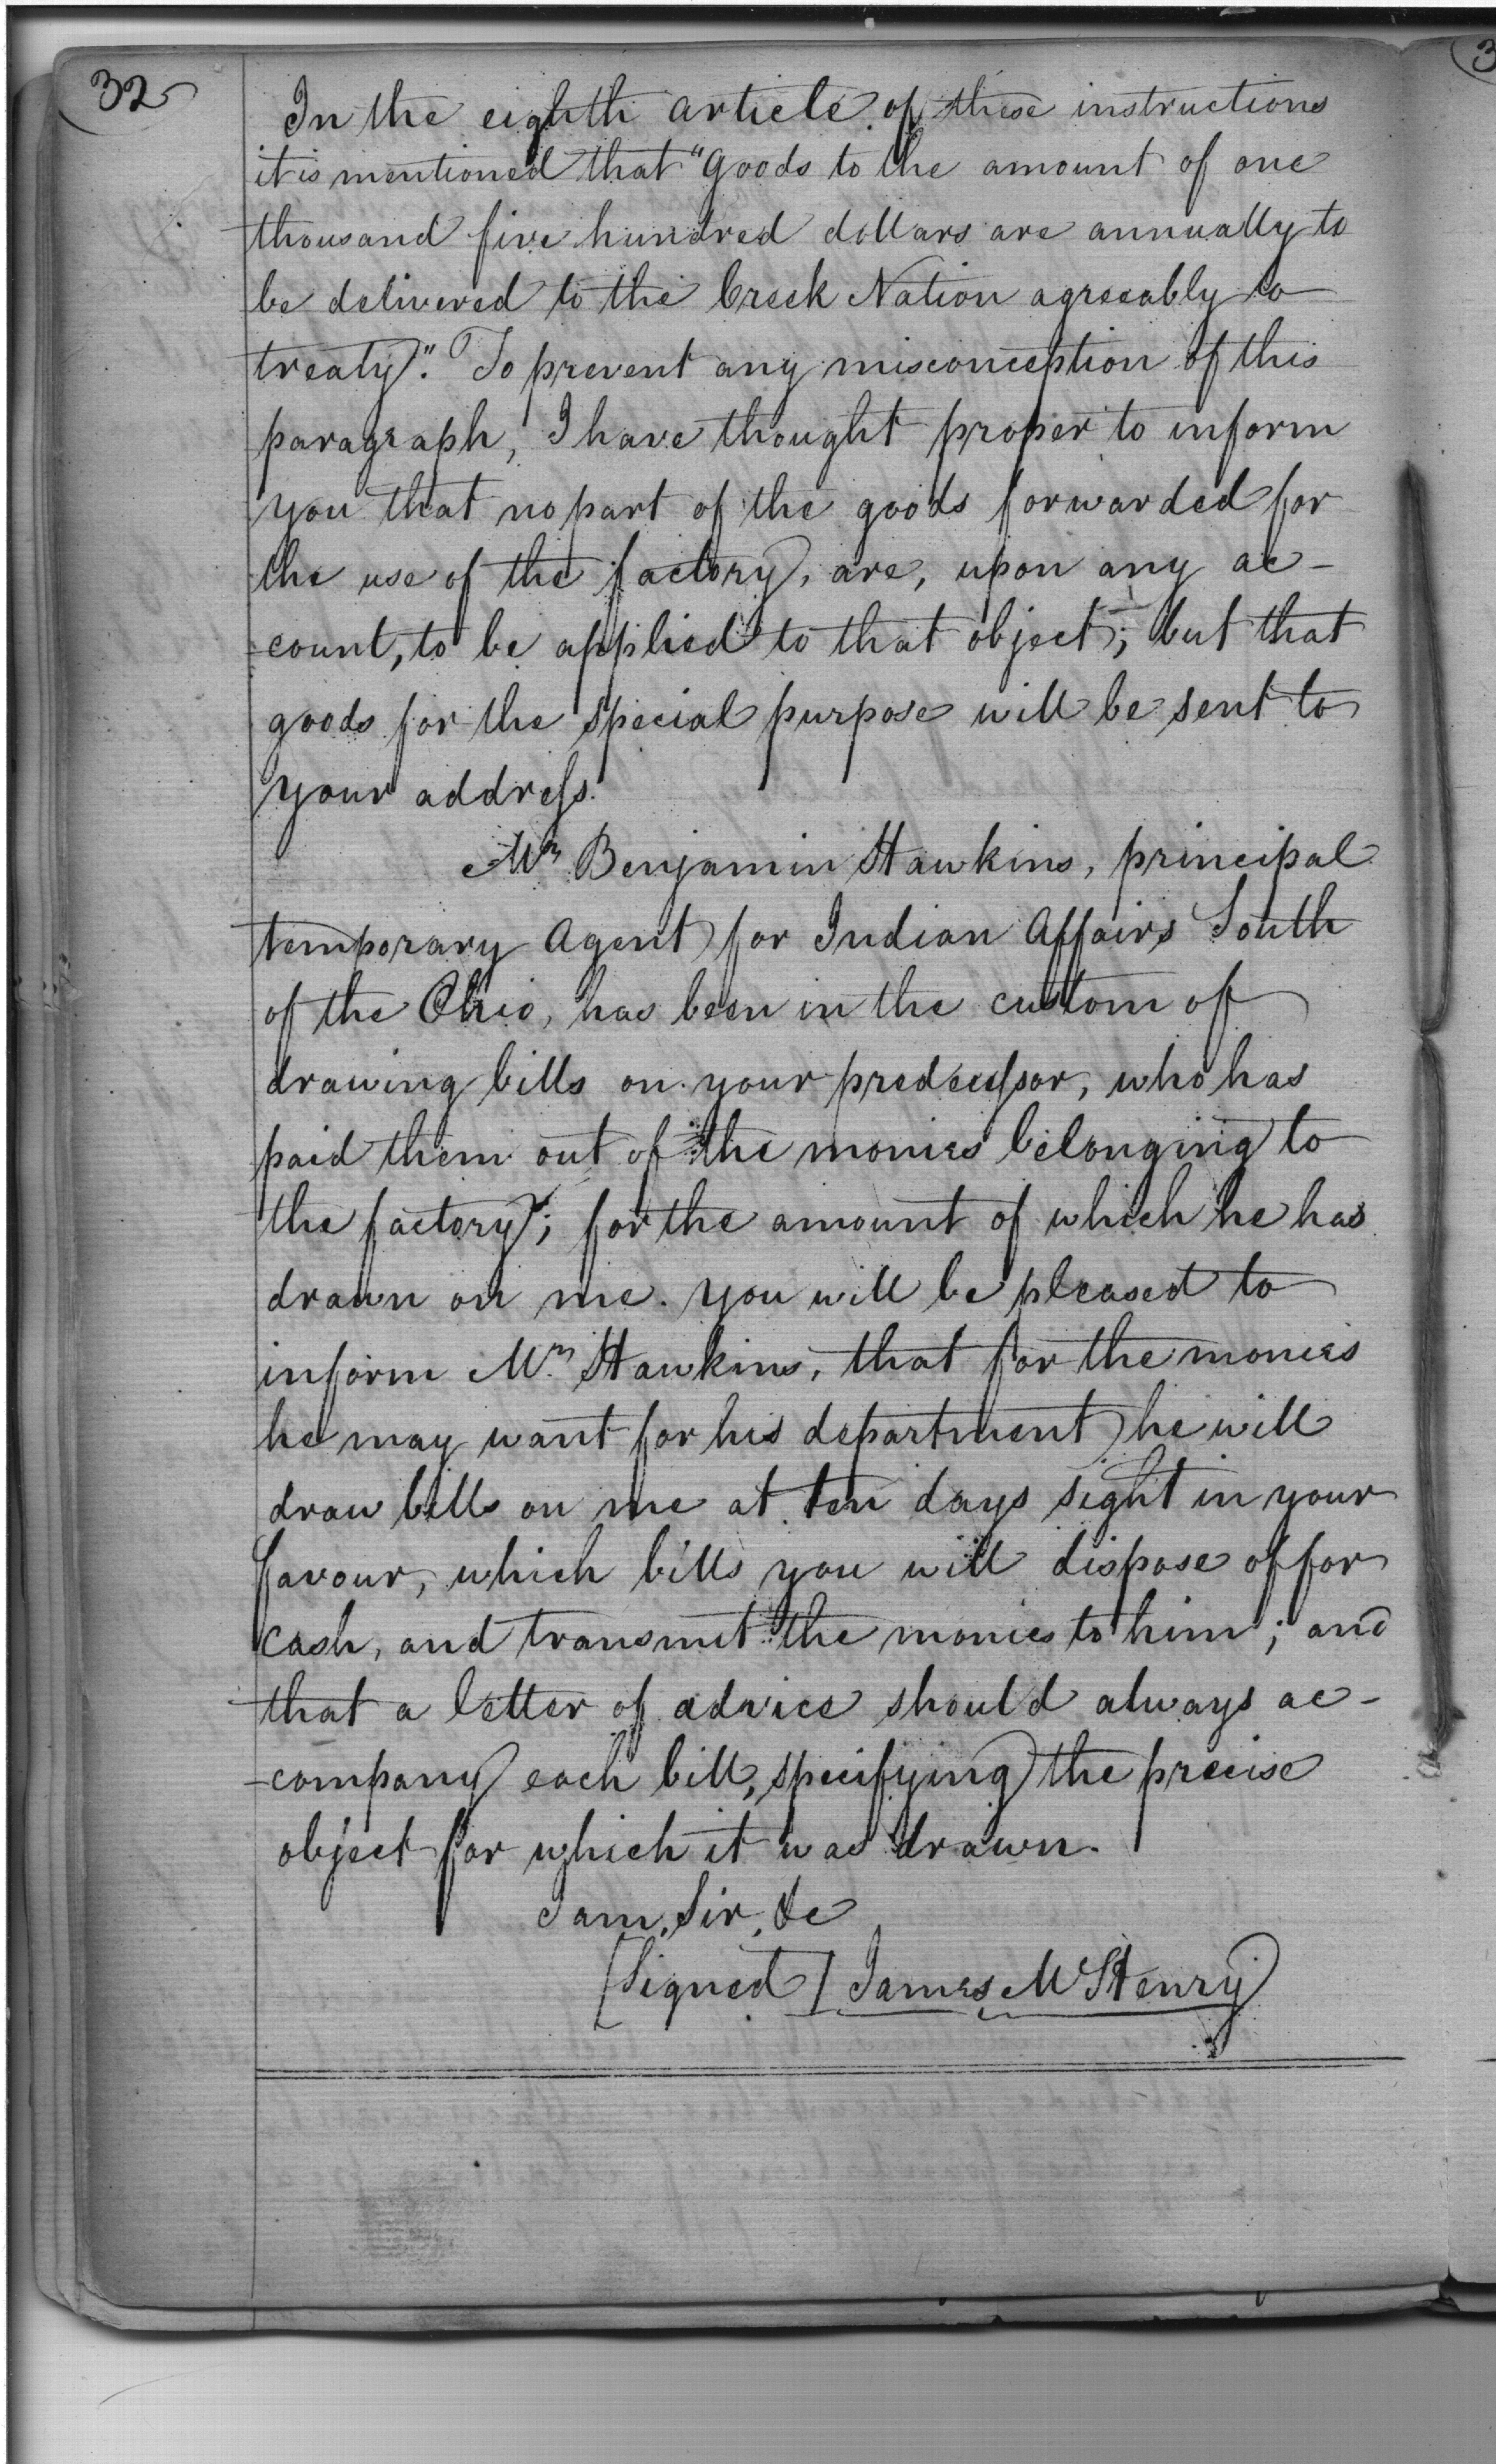 32
In the eighth article of these instructions
it is mentioned that "goods to the amount of one
thousand five hundred dollars are annually to
be delivered to the Creek Nation agreeably to
treaty". To prevent any misconception of this
paragraph, I have thought proper to inform
you that no part of the goods forwarded for
the use of the factory, are, upon any ac-
-count, to be applied to that object; but that
goods for the special purpose will be sent to
your address.
Mr. Benjamin Hawkins, principal
temporary Agent for Indian Affairs South
of the Ohio, has been in the custom of
drawing bills on your predecessor, who has
paid them out of the monies belonging to
the factory; for the amount of which he has
drawn on me. You will be pleased to
inform Mr. Hawkins, that for the monies
he may want for his department he will
draw bills on me at ten days sight in your
favour, which bills you will dispose of for
cash, and transmit the monies to him; and
that a letter of advice should always ac-
-company each bill, specifying the precise
object for which it was drawn.
I am, Sir, &c
[Signed] James McHenry
3